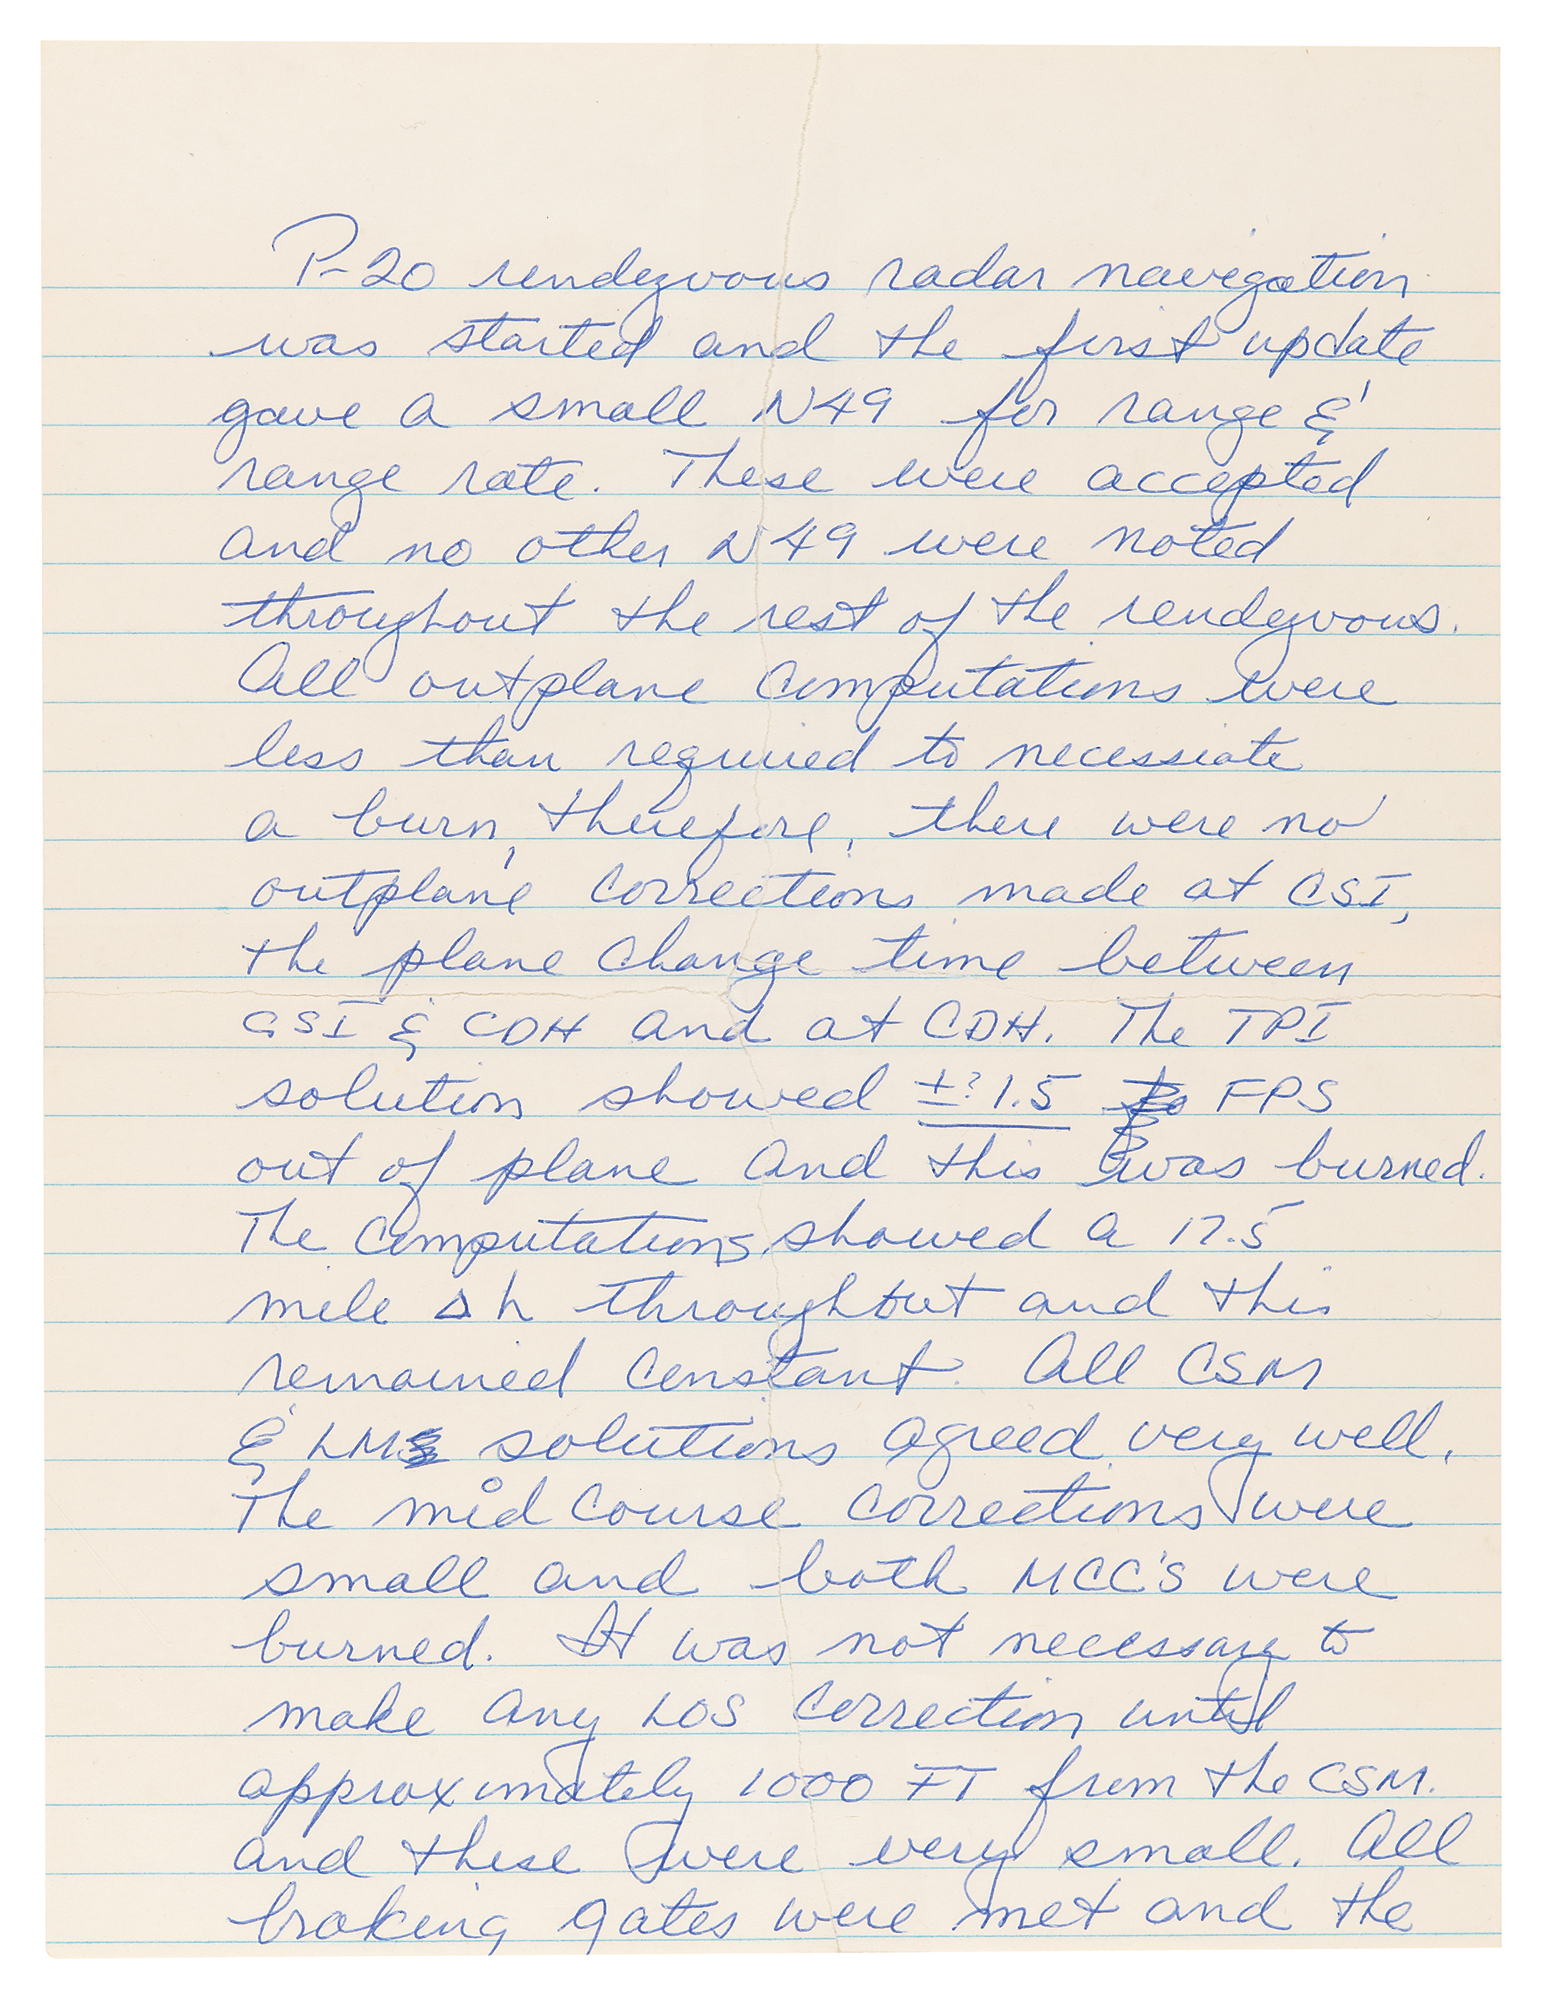 P-20 rendezvous radar navigation
was started and the first update
gave a small N49 for range &
range rate. These were accepted
and no other N49 were noted
throughout the rest of the rendezvous.
All outplane computations were
less than required to necessiate
a burn, therefore, there were no
outplane corrections made at CSI,
the plane change time between
CSI & CDH and at CDH. The TPI
solution showed ±? 1.5 FPS
out of plane and this was burned.
The computations showed a 17.5
mile Δh throughout and this
remained constant. All CSM
& LM solutions agreed very well.
The mid course corrections were
small and both MCC's were
burned. It was not necessary to
make any LOS correction until
approximately 1000 FT from the CSM.
and these were very small. All
braking gates were met and the